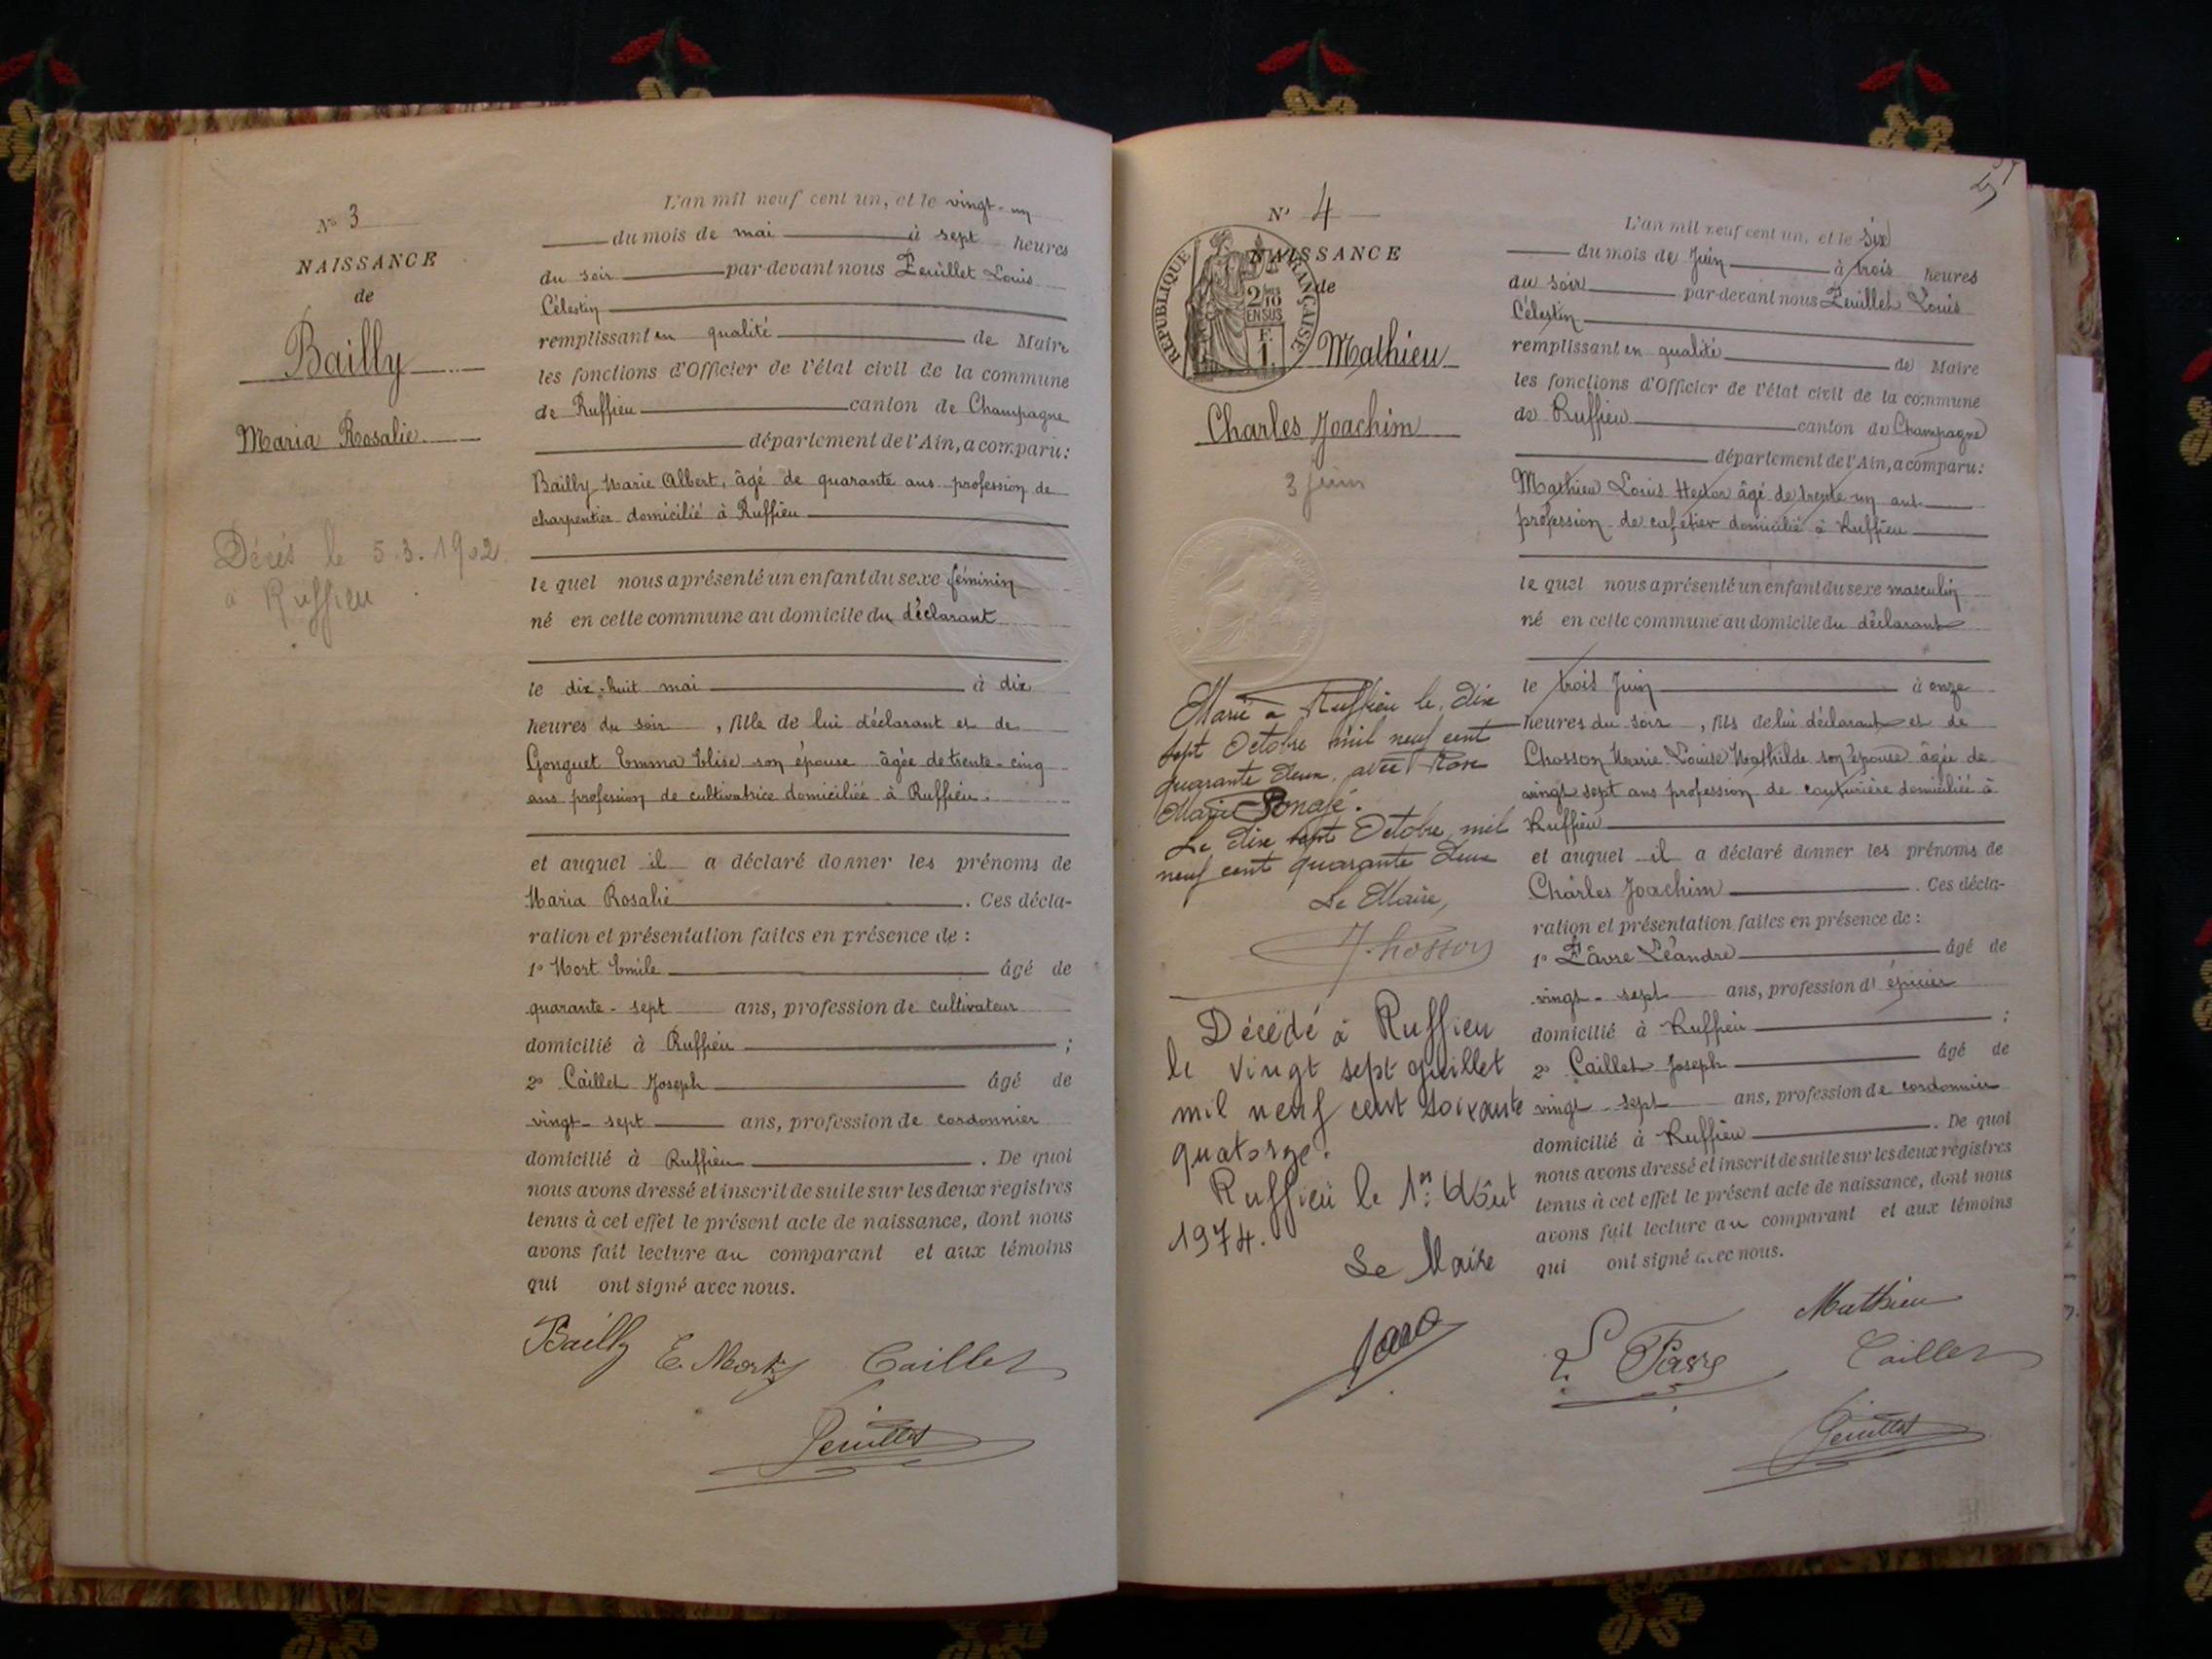 N° 3
NAISSANCE
de
Bailly
Maria Rosalie
Décès le 5.3.1902
à Ruffieu
L'an mil neuf cent un, et le vingt-un
du mois de mai à sept heures
du soir par-devant nous Feuillet Louis
Célestin
remplissant en qualité de Maire
les fonctions d'Officier de l'état civil de la commune
de Ruffieu canton de Champagne
département de l'Ain, a comparu:
Bailly Marie Albert, âgé de quarante ans profession de
charpentier domicilié à Ruffieu
le quel nous a présenté un enfant du sexe féminin
né en cette commune au domicile du déclarant
le dix-huit mai à dix
heures du soir, fille de lui déclarant et de
Gonguet Emma Elise son épouse âgée de trente-cinq
ans profession de cultivatrice domiciliée à Ruffieu.
et auquel il a déclaré donner les prénoms de
Maria Rosalie. Ces décla-
ration et présentation faites en présence de :
1° Mort Emile âgé de
quarante-sept ans, profession de cultivateur
domicilié à Ruffieu ;
2° Caillet Joseph âgé de
vingt-sept ans, profession de cordonnier
domicilié à Ruffieu. De quoi
nous avons dressé et inscrit de suite sur les deux registres
tenus à cet effet le présent acte de naissance, dont nous
avons fait lecture au comparant et aux témoins
qui ont signé avec nous.
Bailly E. Mort Caillet
Feuillet
N° 4
NAISSANCE
de
REPUBLIQUE FRANÇAISE
2/10
EN SUS
F.
1.
Mathieu
Charles Joachim
3 juin
Marié à Ruffieu le dix
sept Octobre mil neuf cent
quarante deux, avec Rose
Marie
Le dix sept Octobre mil
neuf cent quarante deux
Le Maire,
J. Chosson
Décédé à Ruffieu
le vingt sept juillet
mil neuf cent soixante
quatorze.
Ruffieu le 1er Août
1974.
Le Maire
L'an mil neuf cent un, et le six
du mois de Juin à trois heures
du soir par-devant nous Feuillet Louis
Célestin
remplissant en qualité de Maire
les fonctions d'Officier de l'état civil de la commune
de Ruffieu canton de Champagne
département de l'Ain, a comparu:
Mathieu Louis Hector âgé de trente-un ans
profession de cafetier domicilié à Ruffieu
le quel nous a présenté un enfant du sexe masculin
né en cette commune au domicile du déclarant
le trois Juin à onze
heures du soir, fils de lui déclarant et de
Chosson Marie-Louise Mathilde son épouse âgée de
vingt sept ans profession de couturière domiciliée à
Ruffieu
et auquel il a déclaré donner les prénoms de
Charles Joachim. Ces décla-
ration et présentation faites en présence de :
1° Favre Léandre âgé de
vingt-sept ans, profession d'épicier
domicilié à Ruffieu ;
2° Caillet Joseph âgé de
vingt-sept ans, profession de cordonnier
domicilié à Ruffieu. De quoi
nous avons dressé et inscrit de suite sur les deux registres
tenus à cet effet le présent acte de naissance, dont nous
avons fait lecture au comparant et aux témoins
qui ont signé avec nous.
Mathieu
L. Favre Caillet
Feuillet